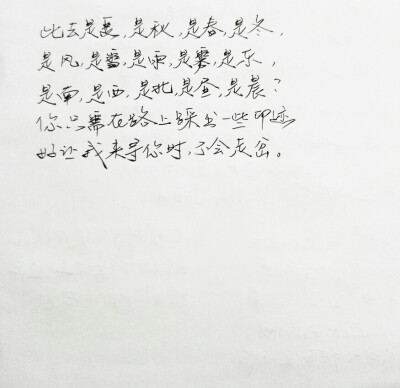 此去是夏,是秋,是春,是冬,
是风,是雪,是雨,是雾,是东,
是南,是西,是北,是昼,是晨?
你只需在路上踩出一些印迹
好让我来寻你时,不会走岔。